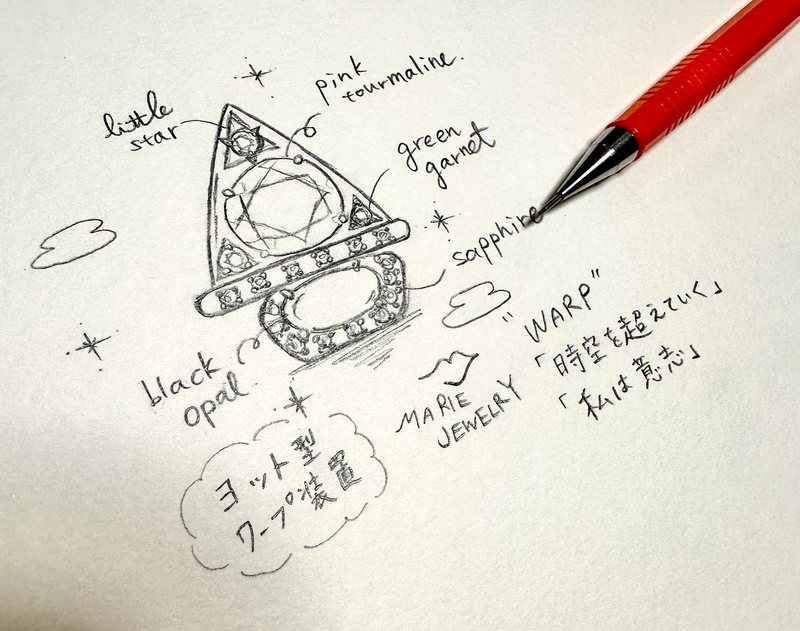 little
star
pink
tourmaline.
green
garnet
sapphire
black
opal
"WARP"
「時空を超えていく」
「私は意志」
MARIE
JEWELRY
ヨット型
ワープ装置